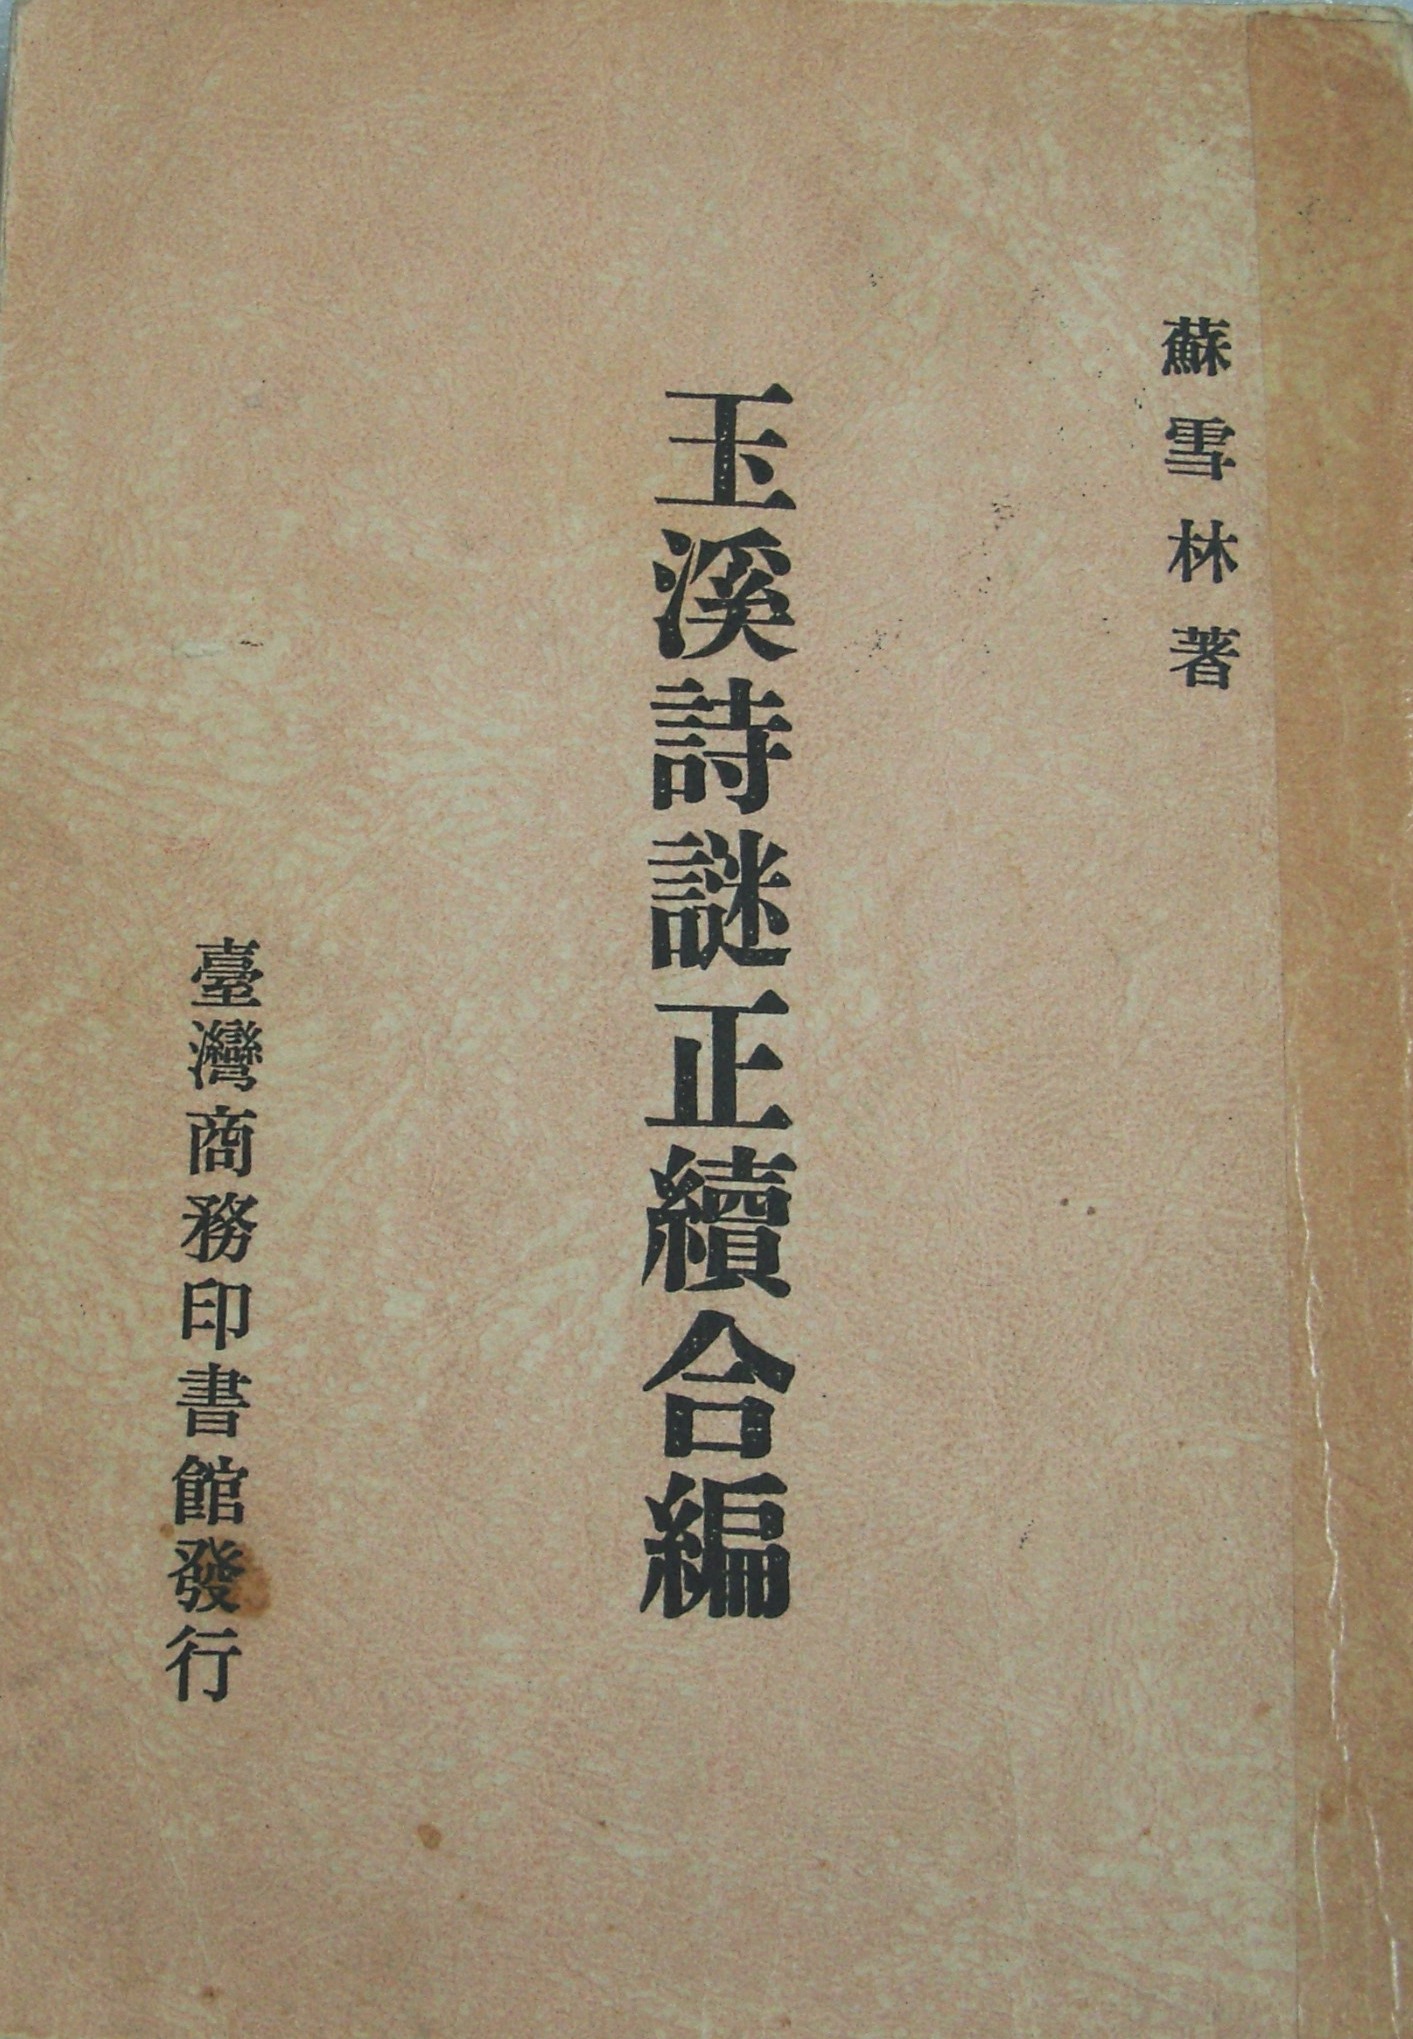 蘇雪林著
玉溪詩謎正續合編
臺灣商務印書館發行